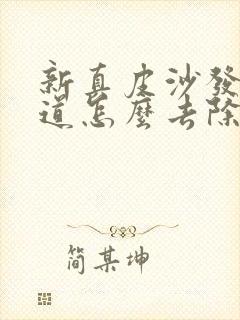 新真皮沙發
道怎麼去除
简某坤